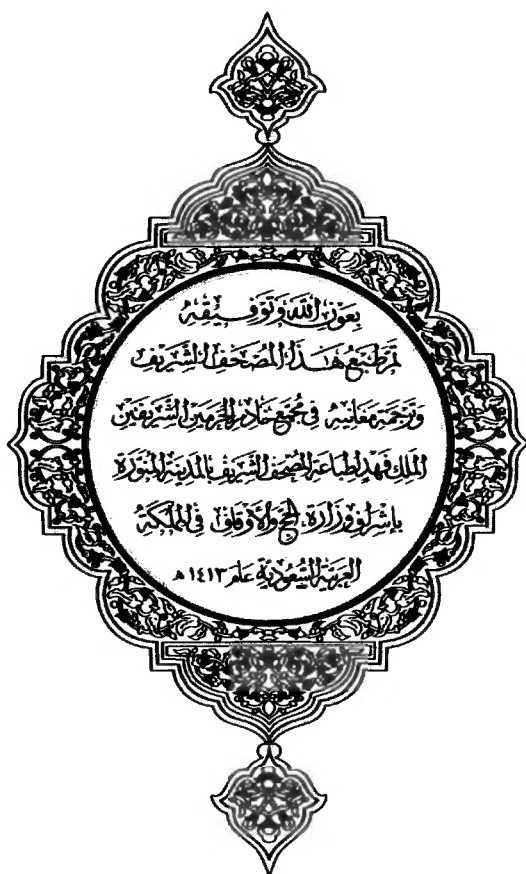 بِعَوْنِ اللَّهِ وَتَوْفِيقِهِ
تم طبع هَذَا المُصْحَفِ الشَّرِيفِ
وَتَرْجَمَة مَعَانِيهِ فِي مُجَمَّع خَادِم الحَرَمَيْنِ الشَّرِيفَيْنِ
المَلِك فَهد لِطِبَاعَةِ المُصْحَفِ الشَّرِيفِ بِالمَدِينَةِ المُنَوَّرَةِ
بِإِشْرَافِ وِزَارَة الحَجِّ وَالأَوْقَافِ فِي المَمْلَكَةِ
العَرَبِيَّةِ السُّعُودِيَّةِ عَام ١٤١٣هـ